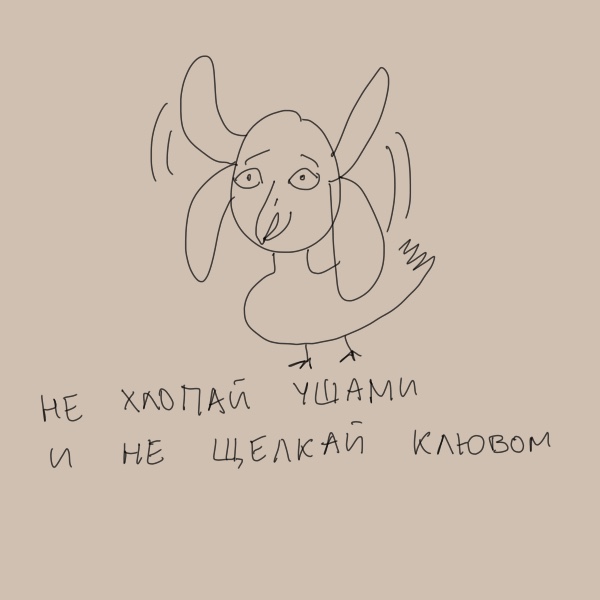 НЕ ХЛОПАЙ УШАМИ
И НЕ ЩЕЛКАЙ КЛЮВОМ